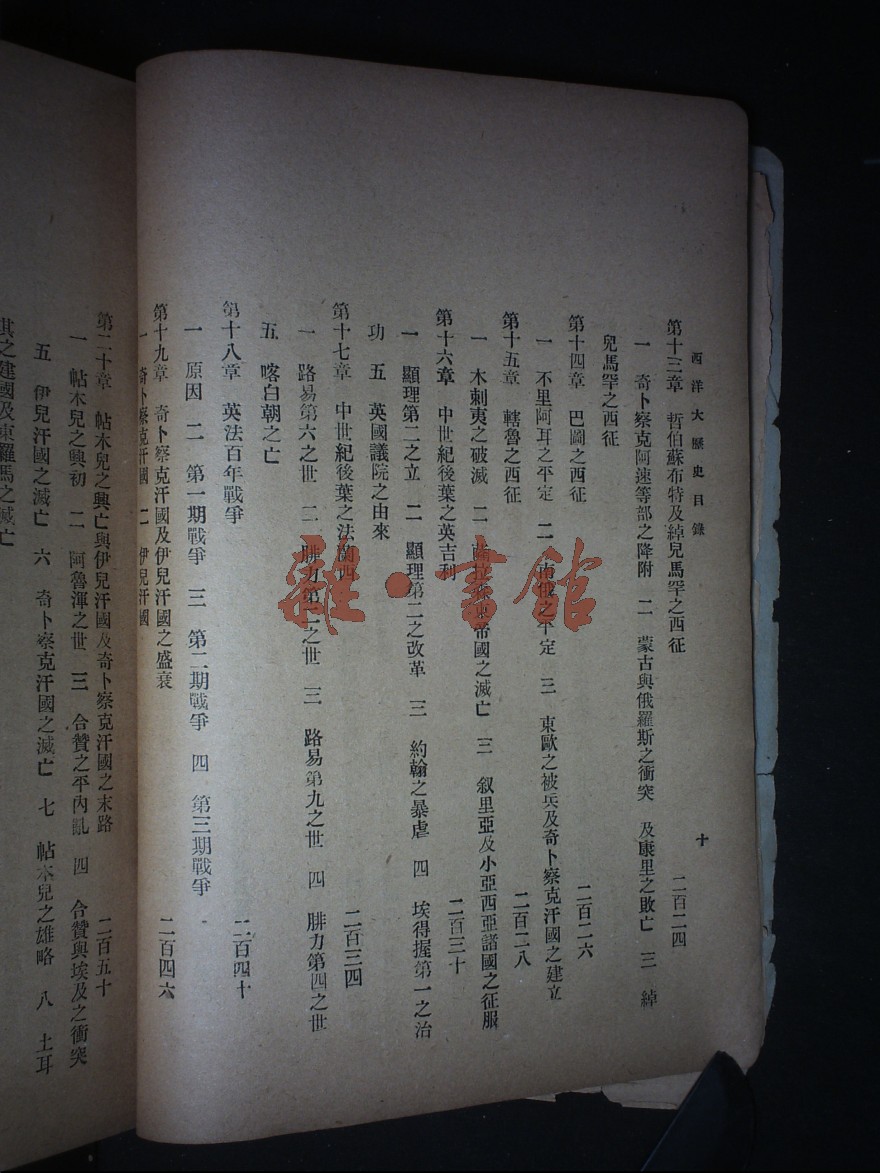 西洋大歷史目錄 十
第十三章 哲伯蘇布特及綽兒馬罕之西征 二百二四
一 奇卜察克阿速等部之降附 二 蒙古與俄羅斯之衝突 及康里之敗亡 三 綽
兒馬罕之西征
第十四章 巴圖之西征 二百二六
一 不里阿耳之平定 二 南俄之平定 三 東歐之被兵及奇卜察克汗國之建立
第十五章 轄魯之西征 二百二八
一 木剌夷之破滅 二 帝國之滅亡 三 叙里亞及小亞西亞諸國之征服
第十六章 中世紀後葉之英吉利 二百三十
一 顯理第二之立 二 顯理第二之改革 三 約翰之暴虐 四 埃得握第一之治
功 五 英國議院之由來
第十七章 中世紀後葉之法蘭西 二百三四
一 路易第六之世 二 腓力第二之世 三 路易第九之世 四 腓力第四之世
五 喀白朝之亡
第十八章 英法百年戰爭 二百四十
一 原因 二 第一期戰爭 三 第二期戰爭 四 第三期戰爭
第十九章 奇卜察克汗國及伊兒汗國之盛衰 二百四六
一 奇卜察克汗國 二 伊兒汗國
第二十章 帖木兒之興亡與伊兒汗國及奇卜察克汗國之末路 二百五十
一 帖木兒之興初 二 阿魯渾之世 三 合贊之平內亂 四 合贊與埃及之衝突
五 伊兒汗國之滅亡 六 奇卜察克汗國之滅亡 七 帖木兒之雄略 八 土耳
其之建國及東羅馬之滅亡
雜·書館